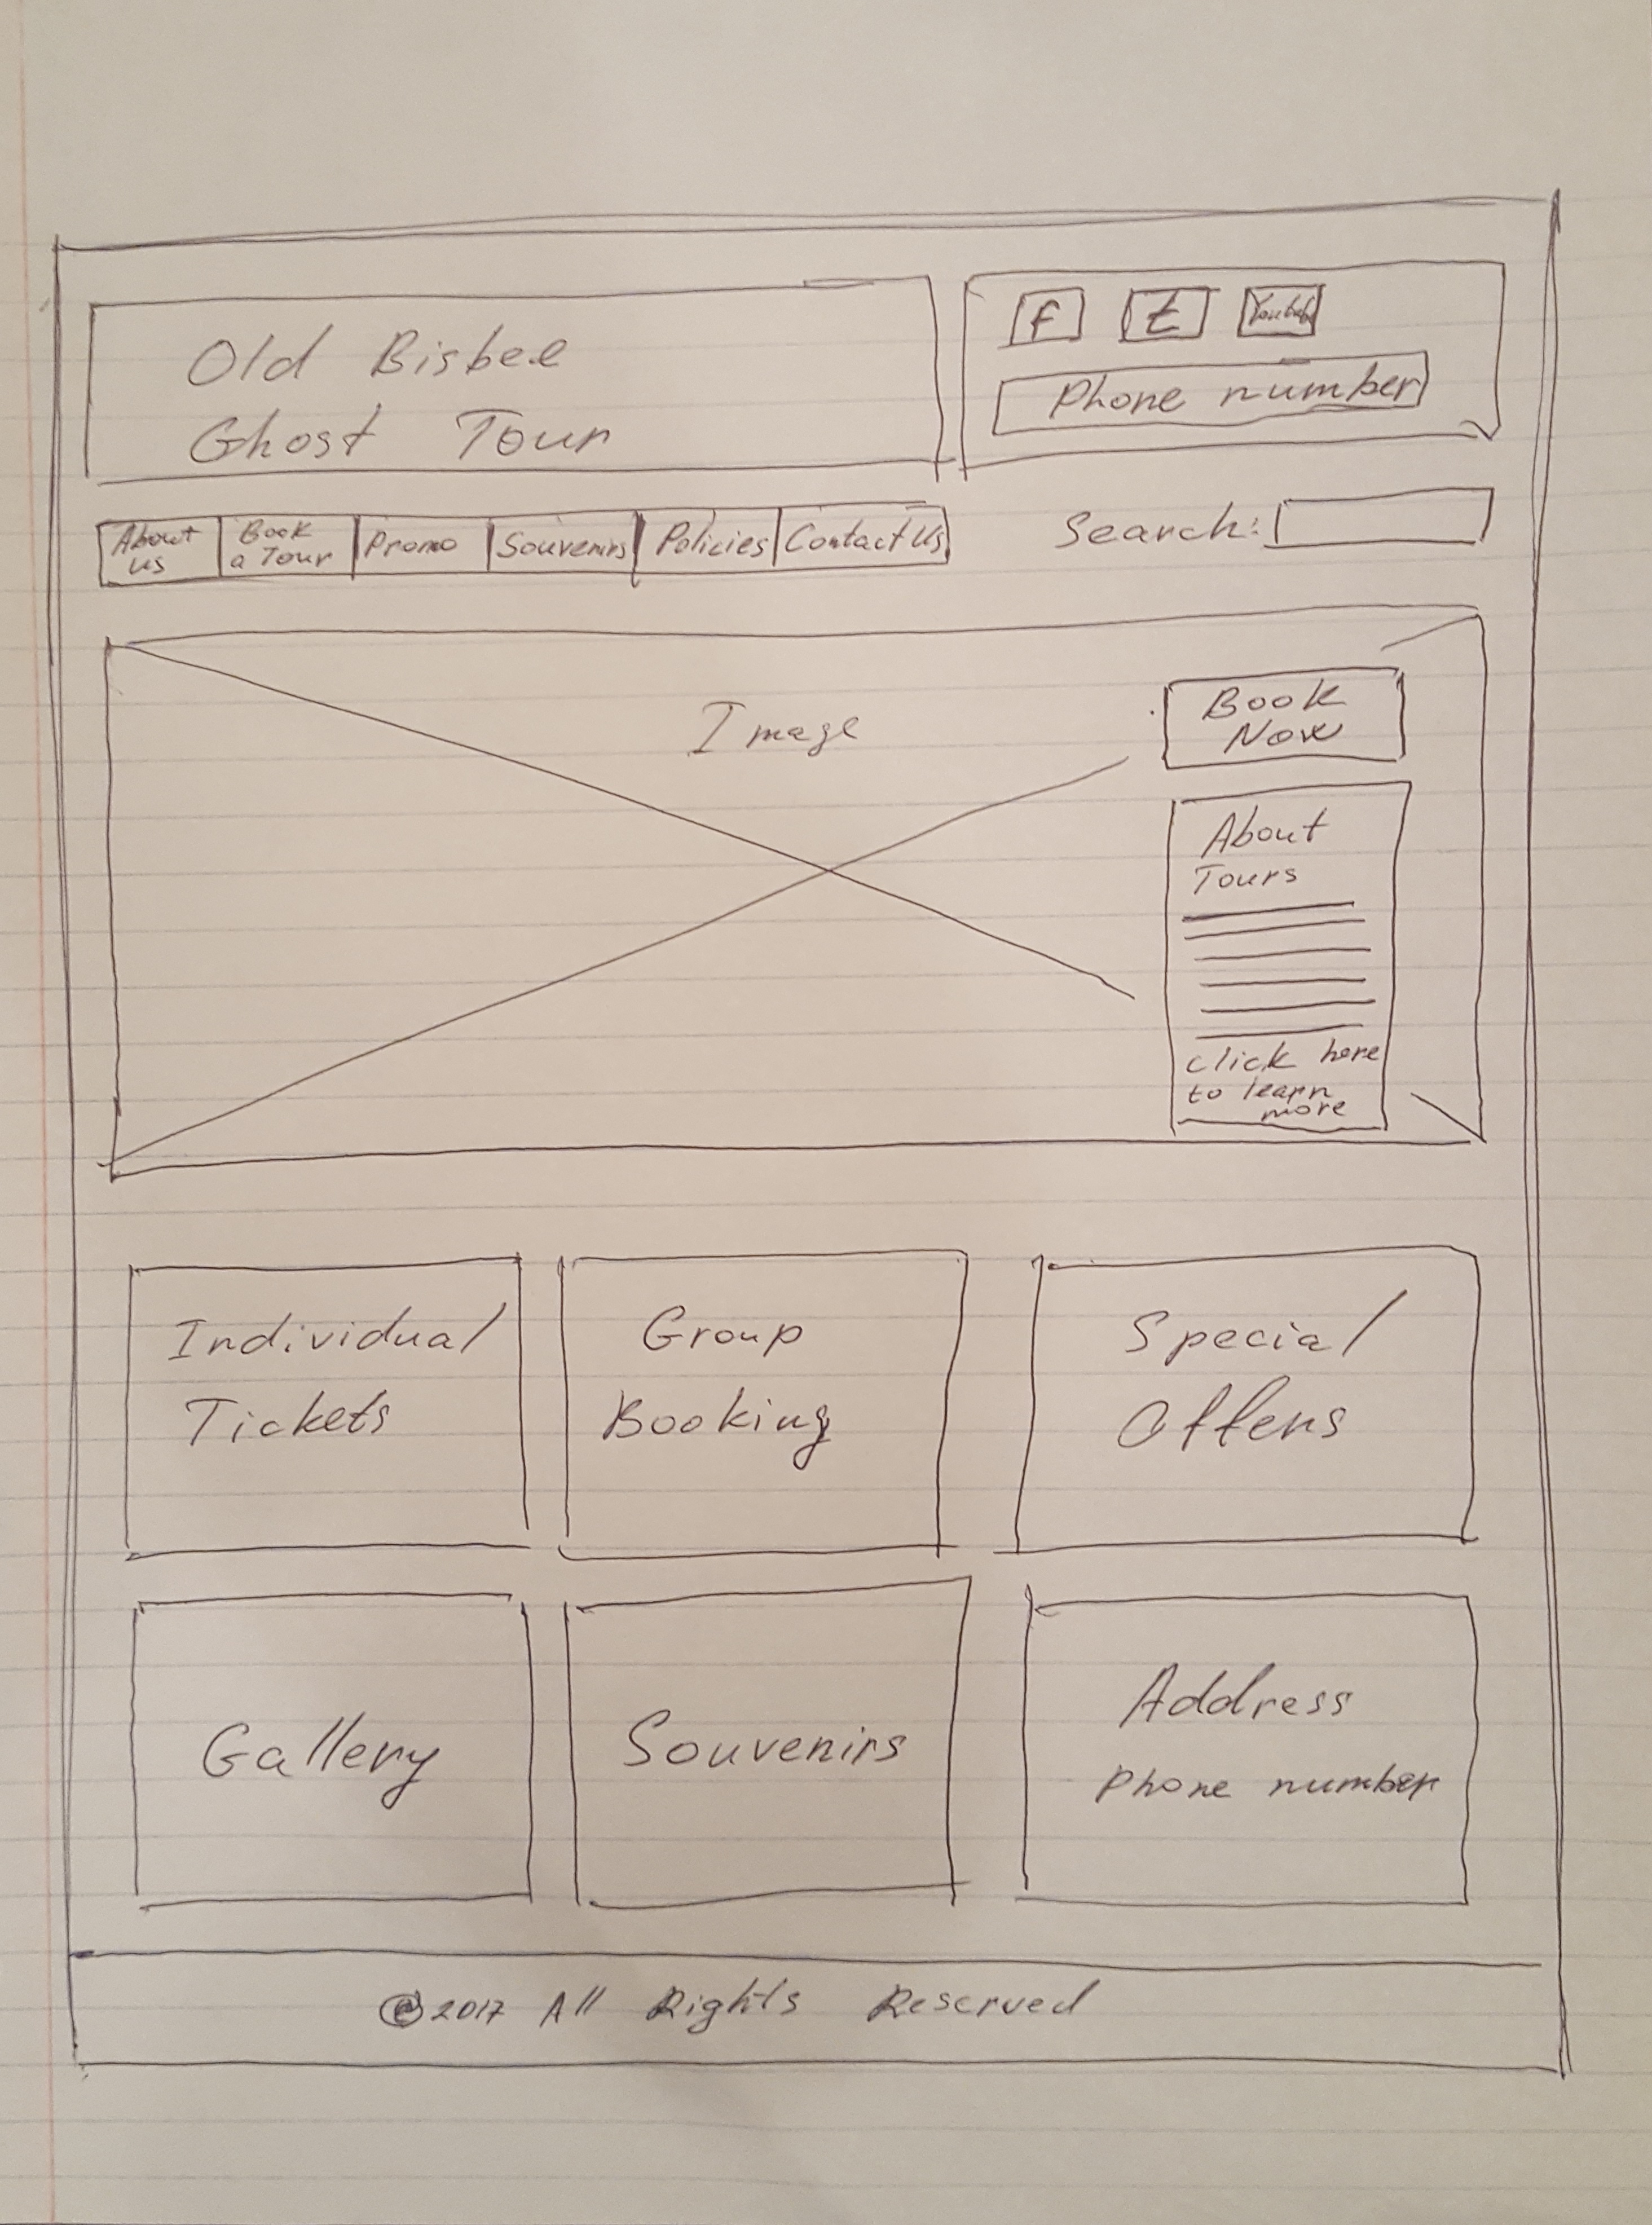 Old Bisbee
Ghost Tour
f t Youtube
Phone number
About us
Book a Tour
Promo
Souvenirs
Policies
Contact Us
Search:
Image
Book
Now
About
Tours
click here
to learn
more
Individual
Tickets
Group
Booking
Special
Offers
Gallery
Souvenirs
Address
Phone number
©2017 All Rights Reserved